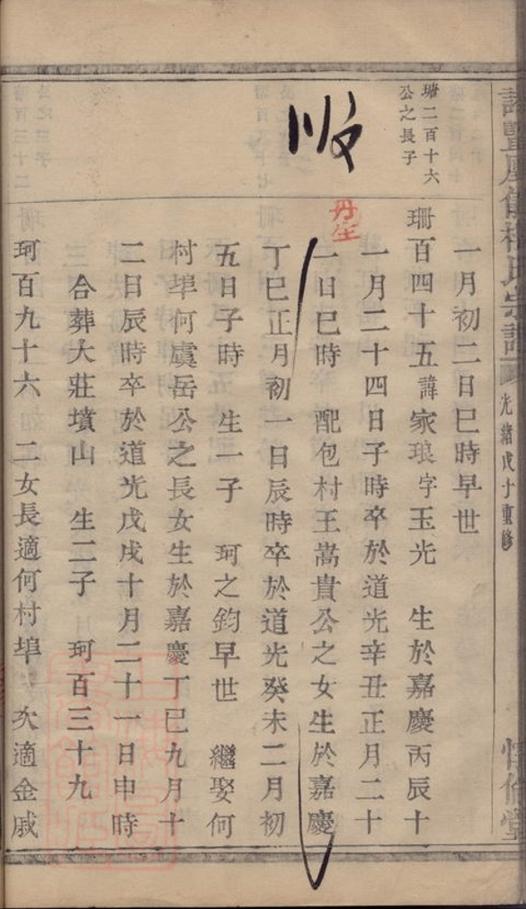 宗譜 光緒戊子重修
塘二百十六
公之長子
一月初二日巳時早世
珊百四十五諱家琅字玉光 生於嘉慶丙辰十
一月二十四日子時卒於道光辛丑正月二十
一日巳時 配包村王嵩貴公之女生於嘉慶
丁巳正月初一日辰時卒於道光癸未二月初
五日子時 生一子 珂之鈞早世 繼娶何
村埠何虞岳公之長女生於嘉慶丁巳九月十
二日辰時卒於道光戊戌十月二十一日申時
合葬大莊墳山 生二子 珂百三十九
珂百九十六 二女長適何村埠 次適金戚